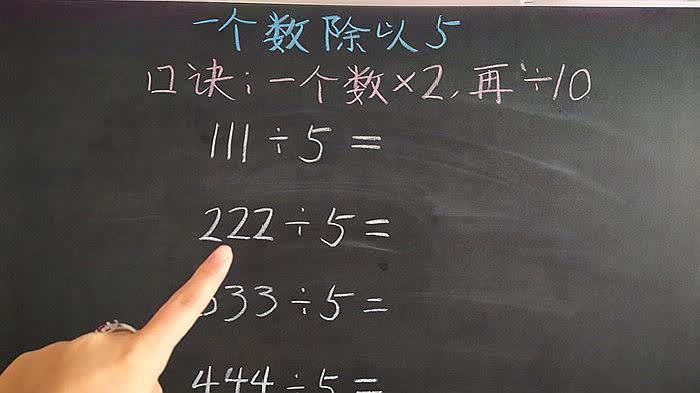 一个数除以5
口诀：一个数×2，再÷10
111÷5=
222÷5=
333÷5=
444÷5=